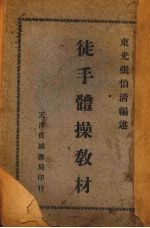 東光張伯清編述
徒手體操教材
天津百城書局印行